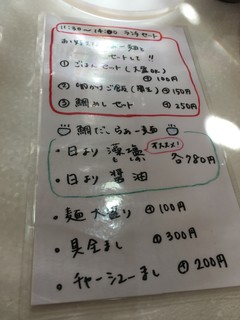 11:30〜14:00 ランチセット
お好きならぁー麺と
セットして!!
① ごはんセット(大盛OK)
⊕100円
② ⊕150円
③ 鯛めしセット ⊕250円
鯛だしらぁー麺
・日より 藻塩 オススメ!
各780円
・日より 醤油
・麺大盛り ⊕100円
・具全まし ⊕300円
・チャーシューまし ⊕200円